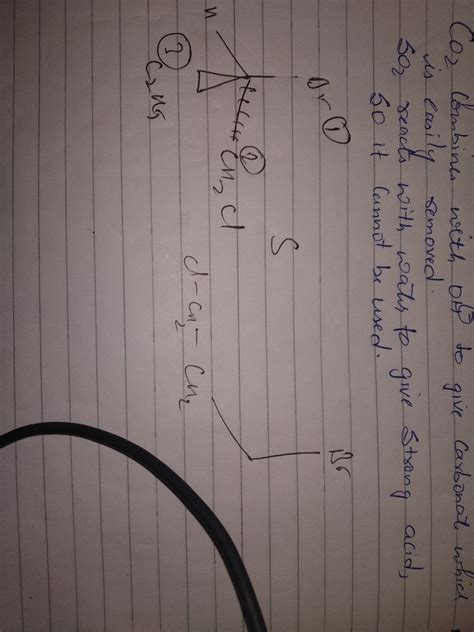 CO2 combines with OH- to give carbonat which
is easily removed.
SO2 reads with water to give strong acid,
So it cannot be used.
H
Br ①
② CH2Cl
③ C2H5
S
Cl-CH2-CH2
Br